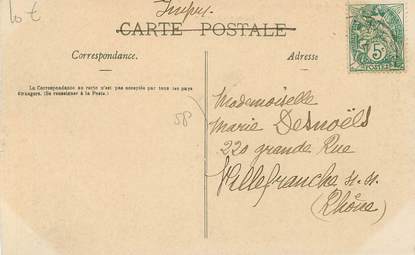 10 €
Impr.
CARTE POSTALE
Correspondance.
Adresse
La Correspondance au recto n'est pas acceptée par tous les pays
étrangers. (Se renseigner à la Poste.)
5c
POSTES
58
Mademoiselle
Marie Desnoëls
220 grande Rue
Villefranche s. s.
(Rhône)